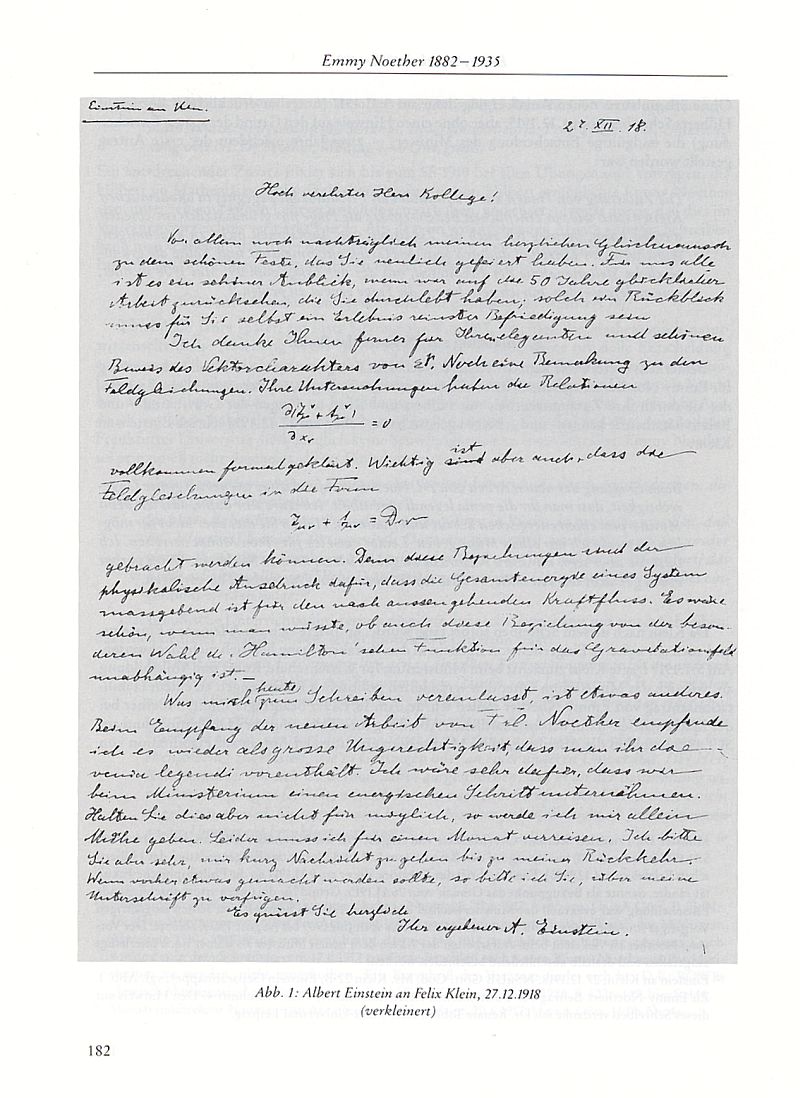 Emmy Noether 1882–1935
Einstein an
27. XII. 18.
Hoch verehrter Herr Kollege!
Vor allem noch nachträglich meinen herzlichen Glückwunsch
zu dem schönen Feste, das Sie neulich gefeiert haben. Für uns alle
ist es ein schöner Anblick, wenn wir auf die 50 Jahre glücklicher
Arbeit zurücksehen, die Sie durchlebt haben; solch ein Rückblick
muss für Sie selbst ein Erlebnis reinster Befriedigung sein
Ich danke Ihnen ferner für Ihren eleganten und schönen
Beweis des Vektorcharakters von Noch eine Bemerkung zu den
Feldgleichungen. Ihre Untersuchungen haben die Relationen
= 0
vollkommen formal geklärt. Wichtig ist aber auch, dass die
Feldgleichungen in die Form
gebracht werden können. Denn diese Beziehungen sind der
physikalische Ausdruck dafür, dass die Gesamtenergie eines System
massgebend ist für den nach aussen gehenden Kraftfluss. Es wäre
schön, wenn man wüsste, ob auch diese Beziehung von der beson-
deren Wahl der Hamilton'schen Funktion für das Gravitationsfeld
unabhängig ist. —
Was mich heute zum Schreiben veranlasst, ist etwas anderes.
Beim Empfang der neuen Arbeit von Frl. Noether empfinde
ich es wieder als grosse Ungerechtigkeit, dass man ihr die
venia legendi vorenthält. Ich wäre sehr dafür, dass wir
beim Ministerium einen energischen Schritt unternähmen.
Halten Sie dies aber nicht für möglich, so werde ich mir allein
Mühe geben. Leider muss ich für einen Monat verreisen. Ich bitte
Sie aber sehr, mir kurz Nachricht zu geben bis zu meiner Rückkehr.
Wenn vorher etwas gemacht werden sollte, so bitte ich Sie, über meine
Unterschrift zu verfügen.
Es grüsst Sie herzlich
Ihr ergebener A. Einstein.
Abb. 1: Albert Einstein an Felix Klein, 27.12.1918
(verkleinert)
182